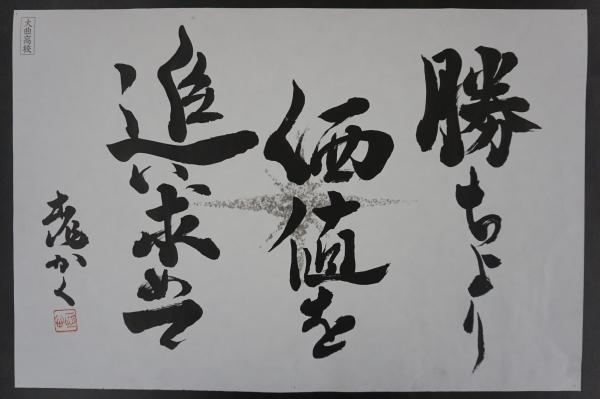 勝ちより
価値を
追い求めて
かく
大曲高校